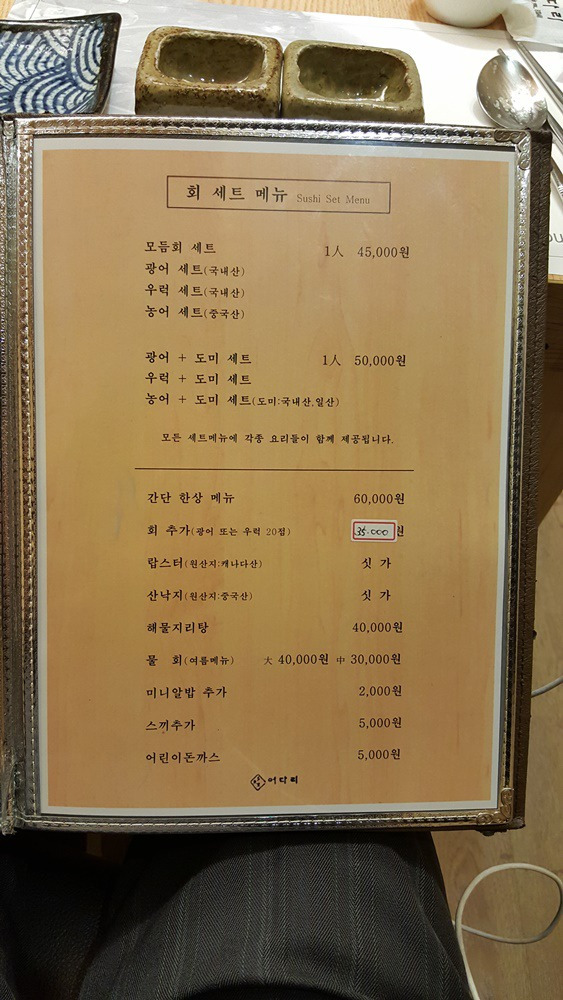 회 세트 메뉴 Sushi Set Menu
모듬회 세트 1人 45,000원
광어 세트(국내산)
우럭 세트(국내산)
농어 세트(중국산)
광어 + 도미 세트 1人 50,000원
우럭 + 도미 세트
농어 + 도미 세트(도미:국내산,일산)
모든 세트메뉴에 각종 요리들이 함께 제공됩니다.
간단 한상 메뉴 60,000원
회 추가(광어 또는 우럭 20점) 35.000원
랍스터(원산지:캐나다산) 싯 가
산낙지(원산지:중국산) 싯 가
해물지리탕 40,000원
물 회(여름메뉴) 大 40,000원 中 30,000원
미니알밥 추가 2,000원
스끼추가 5,000원
어린이돈까스 5,000원
어다리